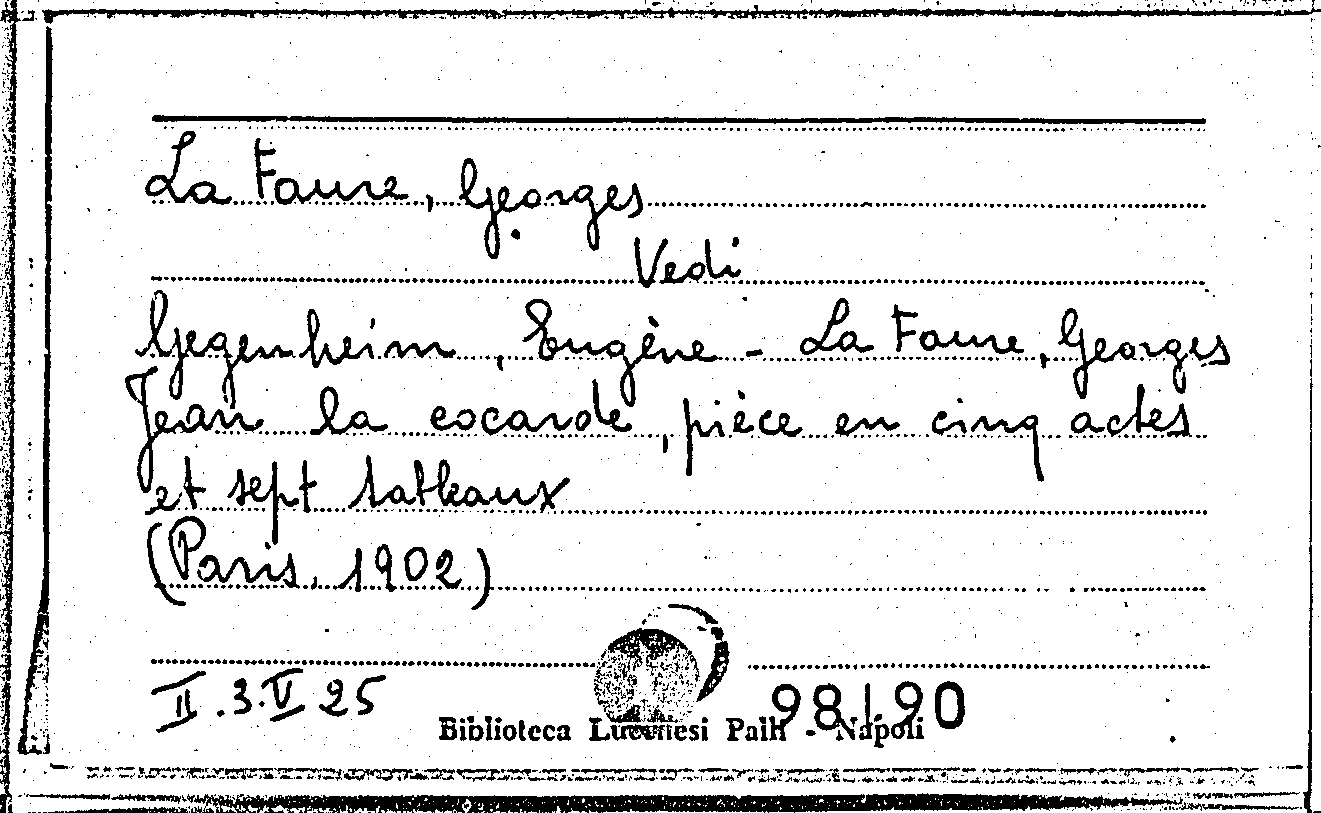 La Faure, Georges
Vedi
Gegenheim, Eugène - La Faure, Georges
Jean la cocarde, pièce en cinq actes
et sept tableaux
(Paris, 1902)
II.3.V 25
98190
Biblioteca Lucchesi Palli - Napoli